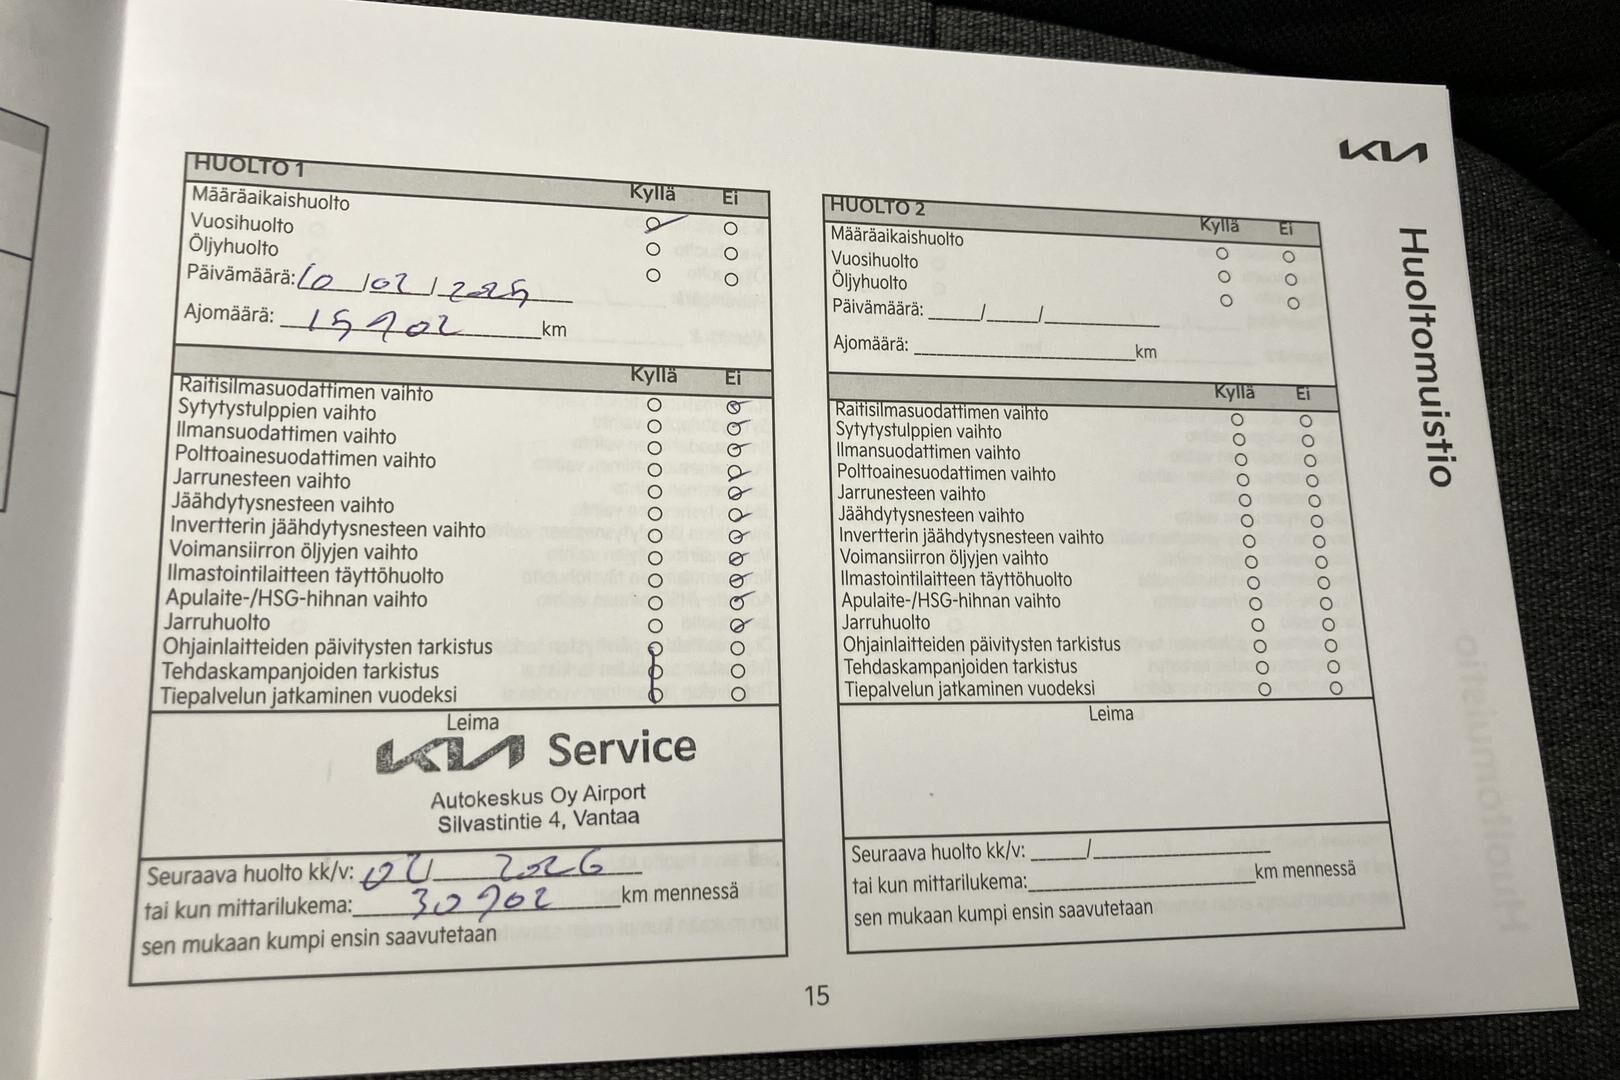 KIA
Huoltomuistio
HUOLTO 1
Kyllä Ei
Määräaikaishuolto
Vuosihuolto
Öljyhuolto
Päivämäärä: 10/02/2025
Ajomäärä: 15902 km
Kyllä Ei
Raitisilmasuodattimen vaihto
Sytytystulppien vaihto
Ilmansuodattimen vaihto
Polttoainesuodattimen vaihto
Jarrunesteen vaihto
Jäähdytysnesteen vaihto
Invertterin jäähdytysnesteen vaihto
Voimansiirron öljyjen vaihto
Ilmastointilaitteen täyttöhuolto
Apulaite-/HSG-hihnan vaihto
Jarruhuolto
Ohjainlaitteiden päivitysten tarkistus
Tehdaskampanjoiden tarkistus
Tiepalvelun jatkaminen vuodeksi
Leima
KIA Service
Autokeskus Oy Airport
Silvastintie 4, Vantaa
Seuraava huolto kk/v: 02/ 2026
tai kun mittarilukema: 30902 km mennessä
sen mukaan kumpi ensin saavutetaan
HUOLTO 2
Kyllä Ei
Määräaikaishuolto
Vuosihuolto
Öljyhuolto
Päivämäärä: ____/____/________
Ajomäärä: ________ km
Kyllä Ei
Raitisilmasuodattimen vaihto
Sytytystulppien vaihto
Ilmansuodattimen vaihto
Polttoainesuodattimen vaihto
Jarrunesteen vaihto
Jäähdytysnesteen vaihto
Invertterin jäähdytysnesteen vaihto
Voimansiirron öljyjen vaihto
Ilmastointilaitteen täyttöhuolto
Apulaite-/HSG-hihnan vaihto
Jarruhuolto
Ohjainlaitteiden päivitysten tarkistus
Tehdaskampanjoiden tarkistus
Tiepalvelun jatkaminen vuodeksi
Leima
Seuraava huolto kk/v: ____/________
tai kun mittarilukema: ________ km mennessä
sen mukaan kumpi ensin saavutetaan
15